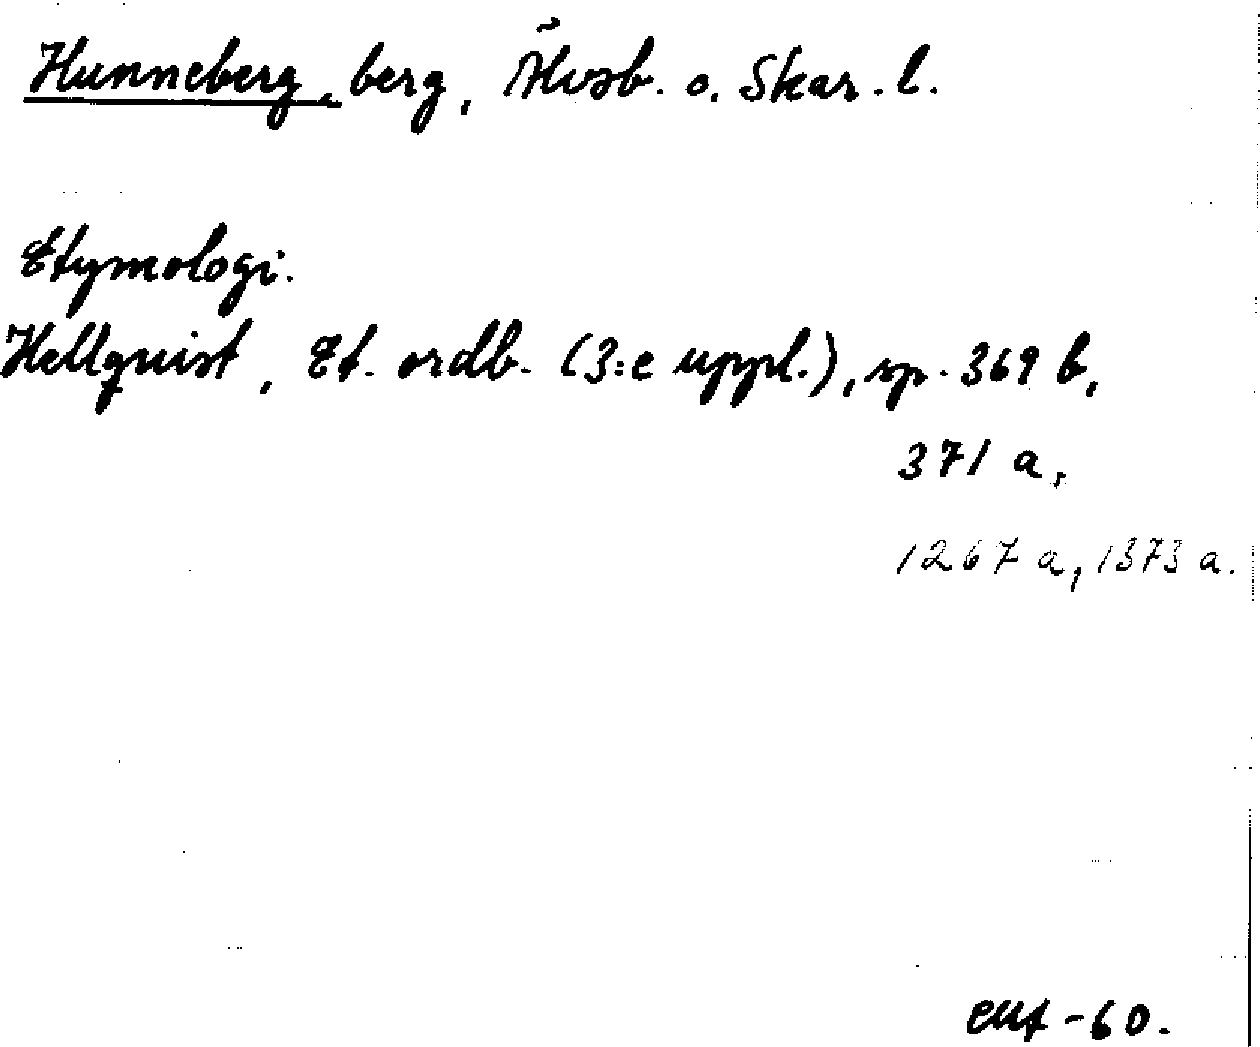 Hunneberg, berg, Älvsb. o. Skar. l.
Etymologi.
Hellquist, Et. ordb. (3:e uppl.), sp. 369 b,
371 a,
1267 a, 1373 a.
-60.